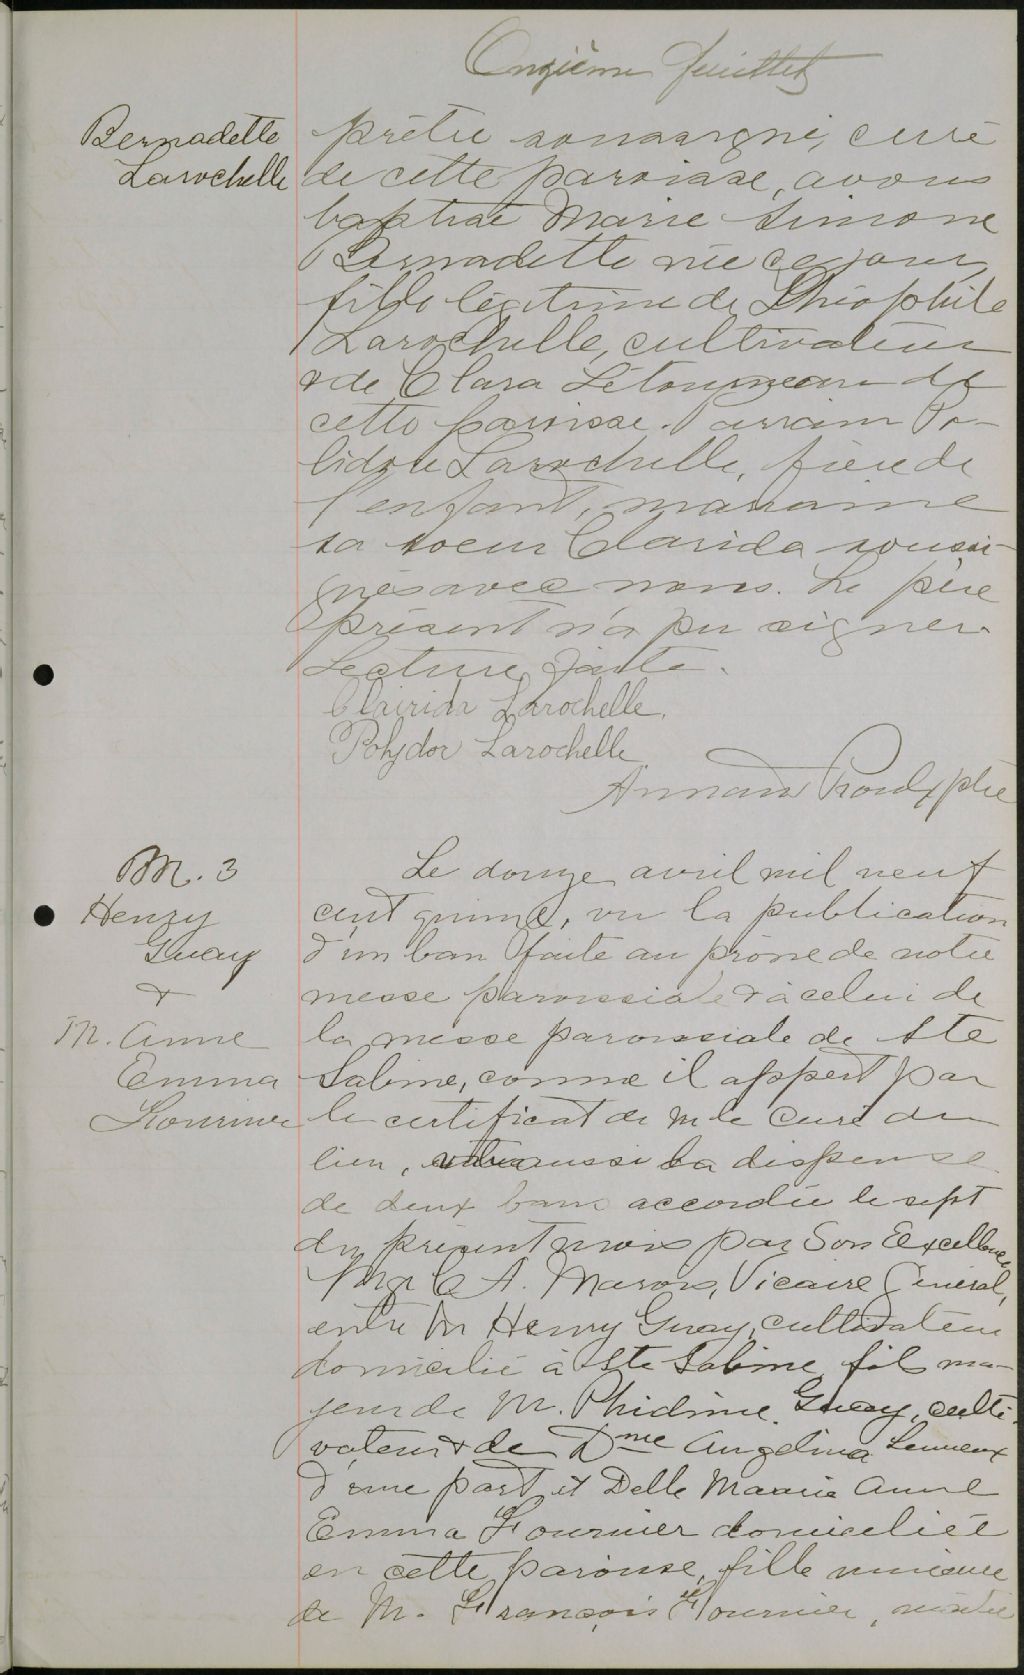 Onzième feuillet
Bernadette
Larochelle
prêtre soussigné, curé
de cette paroisse, avons
baptisé Marie Simone
Bernadette née ce jour,
fille légitime de Théophile
Larochelle, cultivateur
& de Clara Létourneau de
cette paroisse. Parrain Po-
lidore Larochelle, frère de
l'enfant, marraine
sa soeur Clarida soussi-
gnés avec nous. Le père
présent n'a pu signer.
Lecture faite.
Clairida Larochelle
Polydor Larochelle
Armand Proulx ptre
M. 3
Henry
Guay
&
M. Anne
Emma
Fournier
Le douze avril mil neuf
cent quinze, vu la publication
d'un ban faite au prône de notre
messe paroissiale & à celui de
la messe paroissiale de Ste
Sabine, comme il appert par
le certificat de M le Curé du
lieu, aussi la dispense
de deux bans accordée le sept
du présent mois par Son Excellence
Mgr C A. Marois, Vicaire Général,
entre Mr Henry Guay, cultivateur
domicilié à Ste Sabine, fils ma-
jeur de M. Phidime Guay, culti-
vateur & de Dme Angelina Lemieux
d'une part et Delle Marie Anne
Emma Fournier domiciliée
en cette paroisse, fille mineure
de M. François Fournier, rentier